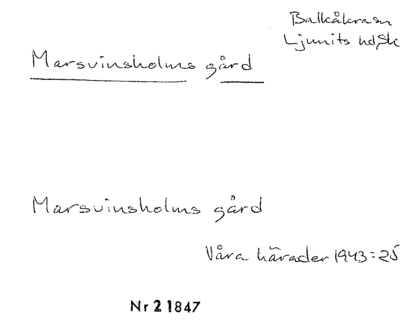 Balkåkra sn
Ljunits hd, Sk
Marsvinsholms gård
Marsvinsholms gård
Våra härader 1943:25
Nr 21847